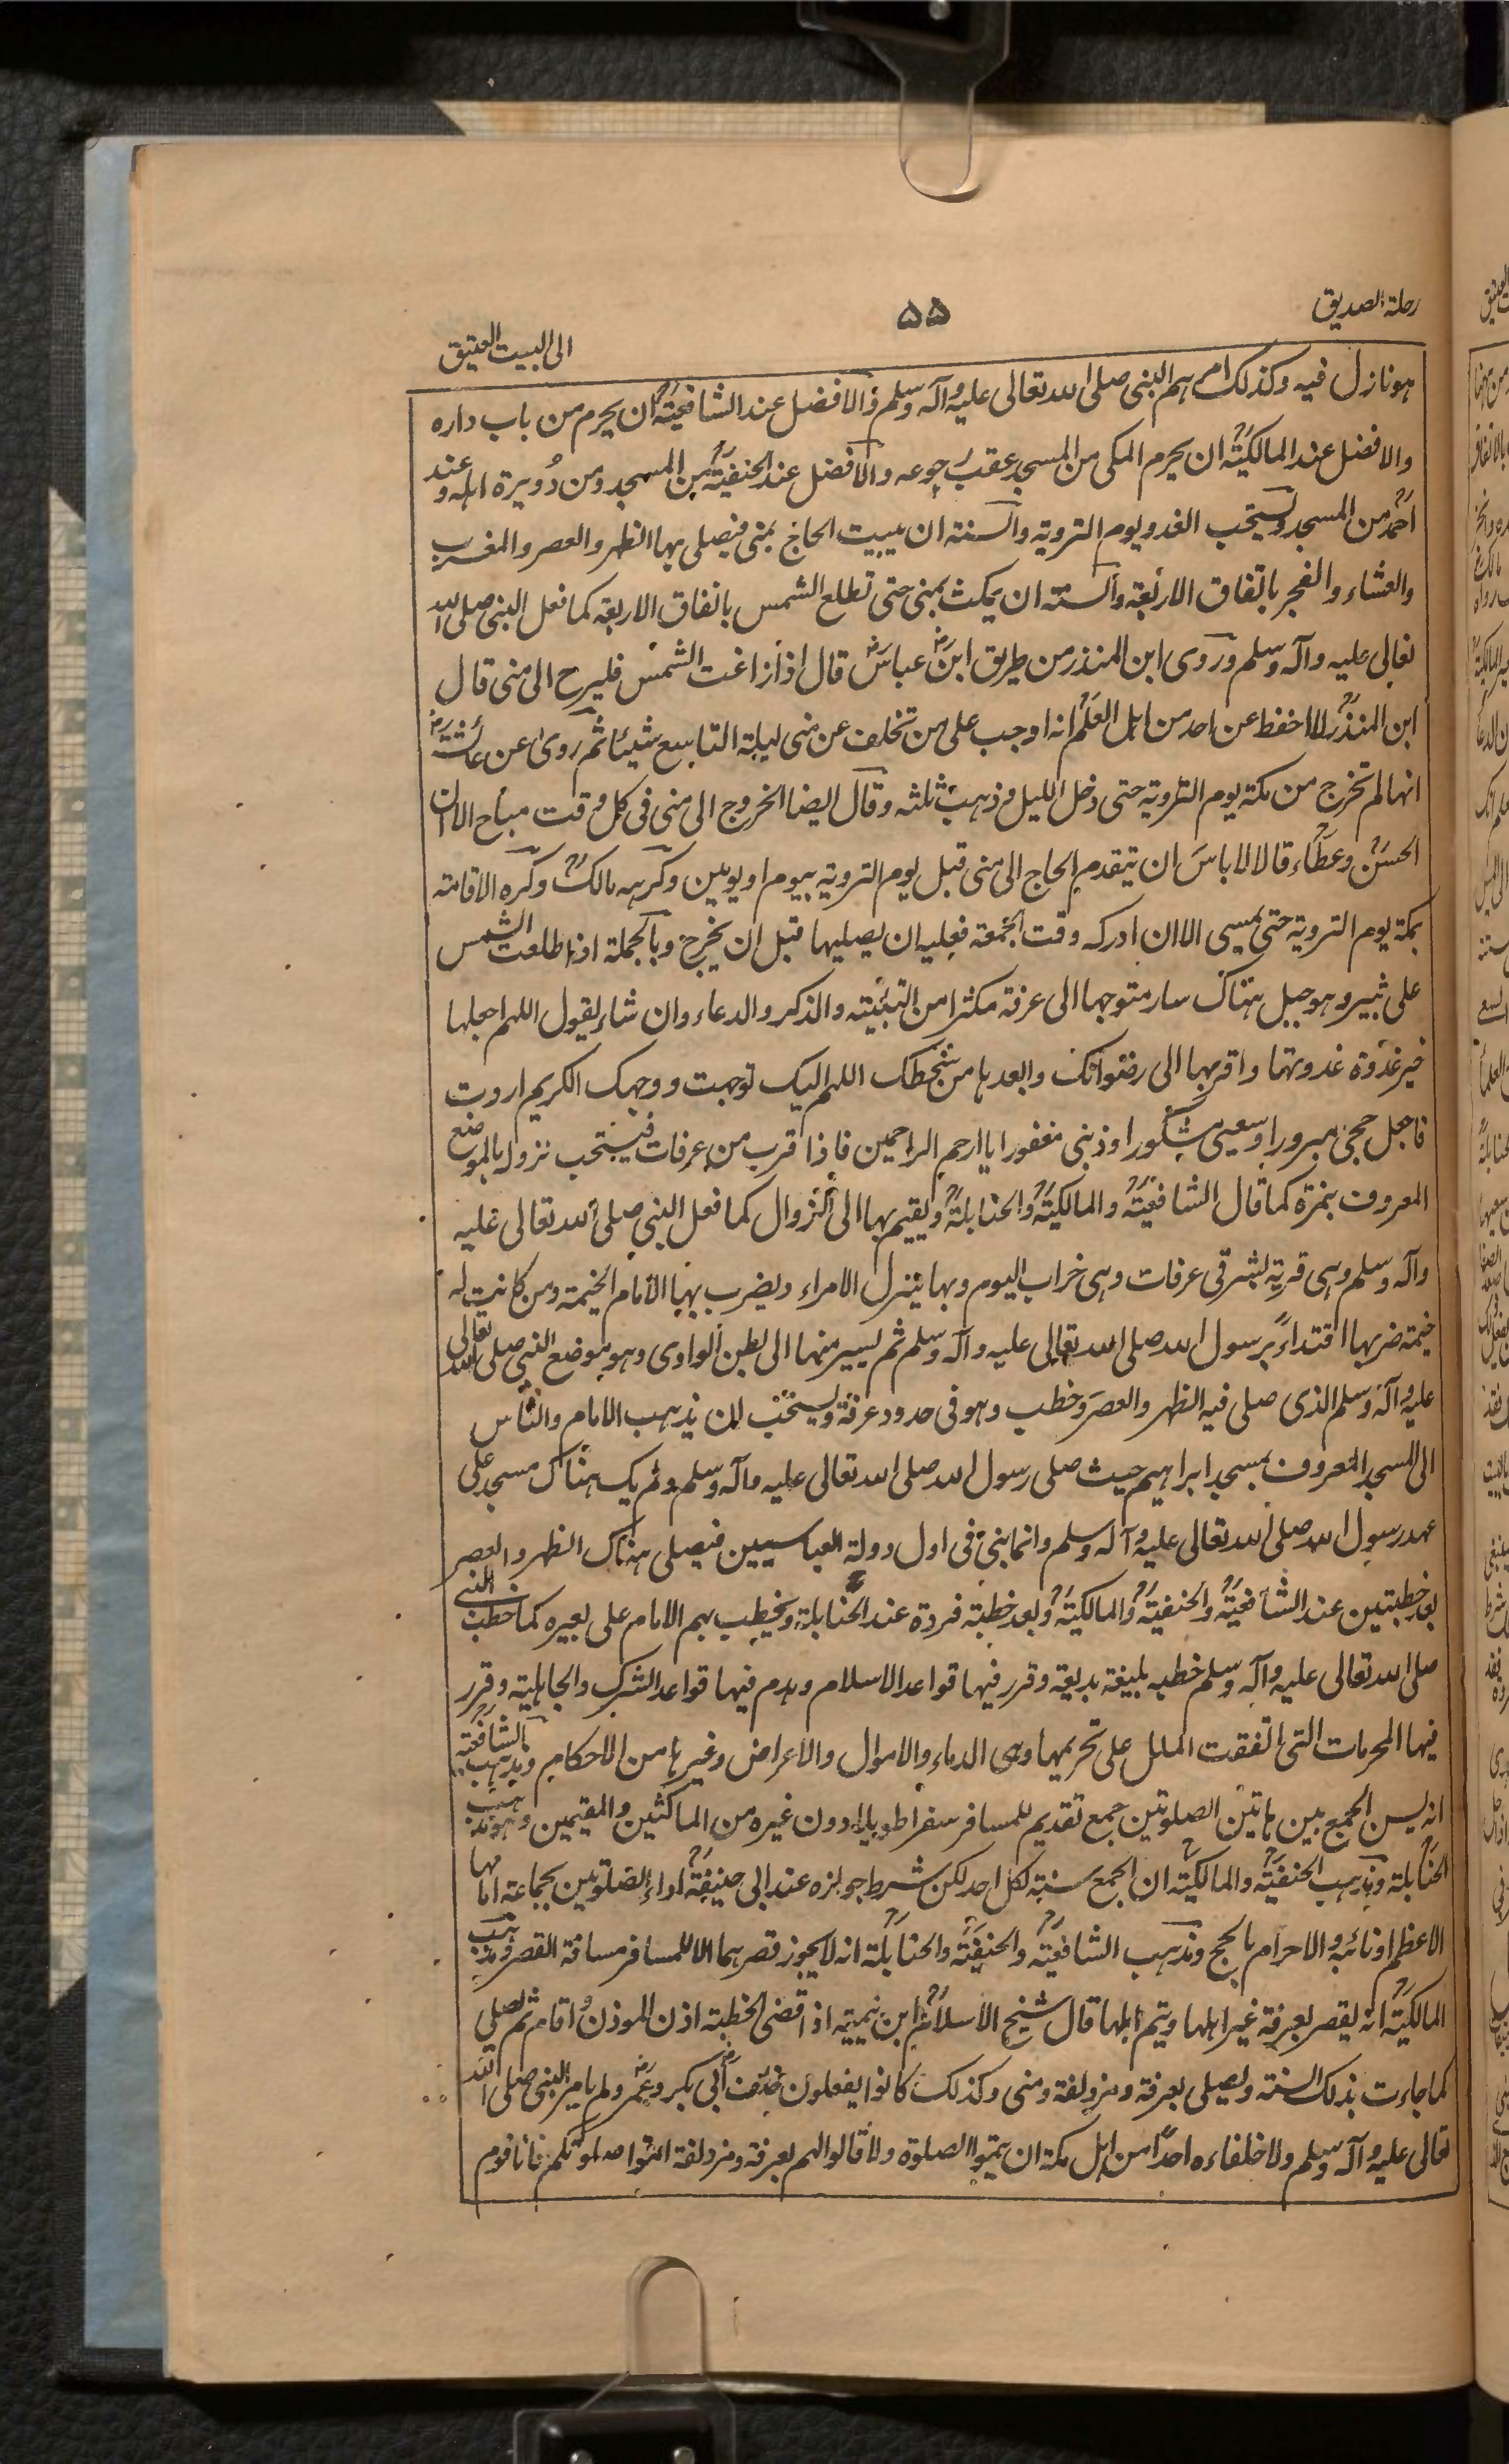 رحلة الصديق
٥٥
الى البيت العتيق
هو نازل فيه وكذلك امرهم النبى صلى الله تعالى عليه وآله وسلم والافضل عند الشافعية ان يحرم من باب داره
والافضل عند المالكية ان يحرم المكى من المسجد عقب رجوعه والافضل عند الحنفية من المسجد ومن دُويرة اهله وعند
احمد من المسجد ويستحب الغدو يوم التروية والسنة ان يبيت الحاج بمنى فيصلى بها الظهر والعصر والمغرب
والعشاء والفجر باتفاق الاربعة والسنة ان يمكث بمنى حتى تطلع الشمس باتفاق الاربعة كما فعل النبى صلى الله
تعالى عليه وآله وسلم وروى ابن المنذر من طريق ابن عباس قال اذا زاغت الشمس فليرح الى منى قال
ابن المنذر لا احفظ عن احد من اهل العلم انه اوجب على من تخلف عن منى ليلة التاسع شيئا ثم روى عن عائشة
انها لم تخرج من مكة يوم التروية حتى دخل الليل وذهب ثلثه وقال ايضا الخروج الى منى فى كل وقت مباح الا ان
الحسن وعطاء قالا لا باس ان يتقدم الحاج الى منى قبل يوم التروية بيوم او يومين وكرهه مالك وكره الاقامة
بمكة يوم التروية حتى يمسى الا ان ادركه وقت الجمعة فعليه ان يصليها قبل ان يخرج وبالجملة اذا طلعت الشمس
على ثبير وهو جبل هناك سار متوجها الى عرفة مكثرا من التلبية والذكر والدعاء وان شاء يقول اللهم اجعلها
خير غدوة غدوتها واقربها الى رضوانك وابعدها من سخطك اللهم اليك توجهت ووجهك الكريم اردت
فاجعل حجى مبرورا وسعيى مشكورا وذنبى مغفورا يا ارحم الراحمين فاذا قرب من عرفات فيستحب نزوله بالموضع
المعروف بنمرة كما قال الشافعية والمالكية والحنابلة ويقيم بها الى الزوال كما فعل النبى صلى الله تعالى عليه
وآله وسلم وهى قرية بشرقى عرفات وهى خراب اليوم وبها ينزل الامراء ويضرب بها الامام الخيمة ومن كانت له
خيمة ضربها اقتداءً برسول الله صلى الله تعالى عليه وآله وسلم ثم يسير منها الى بطن الوادى وهو موضع النبى صلى الله تعالى
عليه وآله وسلم الذى صلى فيه الظهر والعصر وخطب وهو فى حدود عرفة ويستحب ان يذهب الامام والناس
الى المسجد المعروف بمسجد ابراهيم حيث صلى رسول الله صلى الله تعالى عليه وآله وسلم ولم يك هناك مسجد على
عهد رسول الله صلى الله تعالى عليه وآله وسلم وانما بنى فى اول دولة العباسيين فيصلى هناك الظهر والعصر
بعد خطبتين عند الشافعية والحنفية والمالكية وبعد خطبة فردة عند الحنابلة ويخطب بهم الامام على بعيره كما خطب النبى
صلى الله تعالى عليه وآله وسلم خطبه بليغة بديعة وقرر فيها قواعد الاسلام وهدم فيها قواعد الشرك والجاهلية وقرر
فيها المحرمات التى اتفقت الملل على تحريمها وهى الدماء والاموال والاعراض وغيرها من الاحكام ومذهب الشافعية
انه يسن الجمع بين هاتين الصلوتين جمع تقديم للمسافر سفرا طويلا دون غيره من الماكثين والمقيمين وهو مذهب
الحنابلة ومذهب الحنفية والمالكية ان الجمع سنة لكل احد لكن شرط جوازه عند ابى حنيفة اداء الصلوتين بجماعة امامها
الاعظم او نائبه والاحرام بالحج ومذهب الشافعية والحنفية والحنابلة انه لا يجوز قصرهما الا للمسافر مسافة القصر ومذهب
المالكية انه يقصر بعرفة غير اهلها ويتم اهلها قال شيخ الاسلام ابن تيمية اذا قضى الخطبة اذن الموذن واقام ثم يصلى
كما جاءت بذلك السنة ويصلى بعرفة ومزدلفة ومنى وكذلك كانوا يفعلون خلف ابى بكر وعمر ولم يامر النبى صلى الله
تعالى عليه وآله وسلم ولا خلفاءه احدًا من اهل مكة ان يتموا الصلوة ولا قالوا لهم بعرفة ومزدلفة اتموا صلوتكم فانا قوم